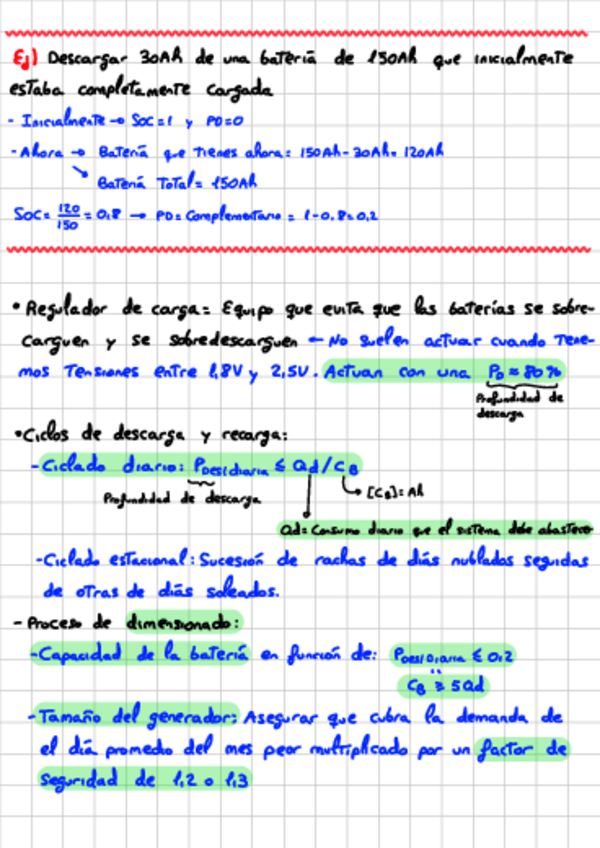 Ej) Descargar 30Ah de una batería de 150Ah que inicialmente
estaba completamente cargada
- Inicialmente → SoC=1 y PD=0
- Ahora → Batería que tienes ahora: 150Ah-30Ah= 120Ah
↘ Batería Total= 150Ah
SoC= 120/150 = 0,8 → PD= Complementario = 1-0,8=0,2
• Regulador de carga= Equipo que evita que las baterías se sobre-
carguen y se sobredescarguen ← No suelen actuar cuando tene-
mos tensiones entre 1,8V y 2,5V. Actúan con una PD ≈ 80%
Profundidad de
descarga
• Ciclos de descarga y recarga:
- Ciclado diario: PDes/diaria ≤ Qd/CB
Profundidad de descarga
[CB]= Ah
Qd= Consumo diario que el sistema debe abastecer
- Ciclado estacional: Sucesión de rachas de días nublados seguidas
de otras de días soleados.
- Proceso de dimensionado:
- Capacidad de la batería en función de: PDes/Diaria ≤ 0,2
CB ≥ 5Qd
- Tamaño del generador: Asegurar que cubra la demanda de
el día promedio del mes peor multiplicado por un factor de
seguridad de 1,2 o 1,3